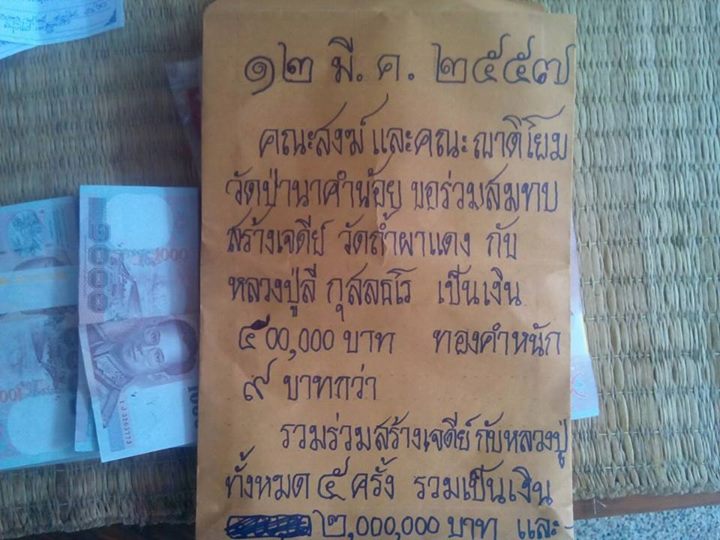 ๑๒ มี. ค. ๒๕๕๗
คณะสงฆ์ และคณะญาติโยม
วัดป่านาคำน้อย ขอร่วมสมทบ
สร้างเจดีย์ วัดถ้ำผาแดง กับ
หลวงปู่ลี กุสลธโร เป็นเงิน
๕๐๐,๐๐๐ บาท ทองคำหนัก
๙ บาทกว่า
รวมร่วมสร้างเจดีย์ กับหลวงปู่
ทั้งหมด ๕ ครั้ง รวมเป็นเงิน
๒,๐๐๐,๐๐๐ บาท และ
1000